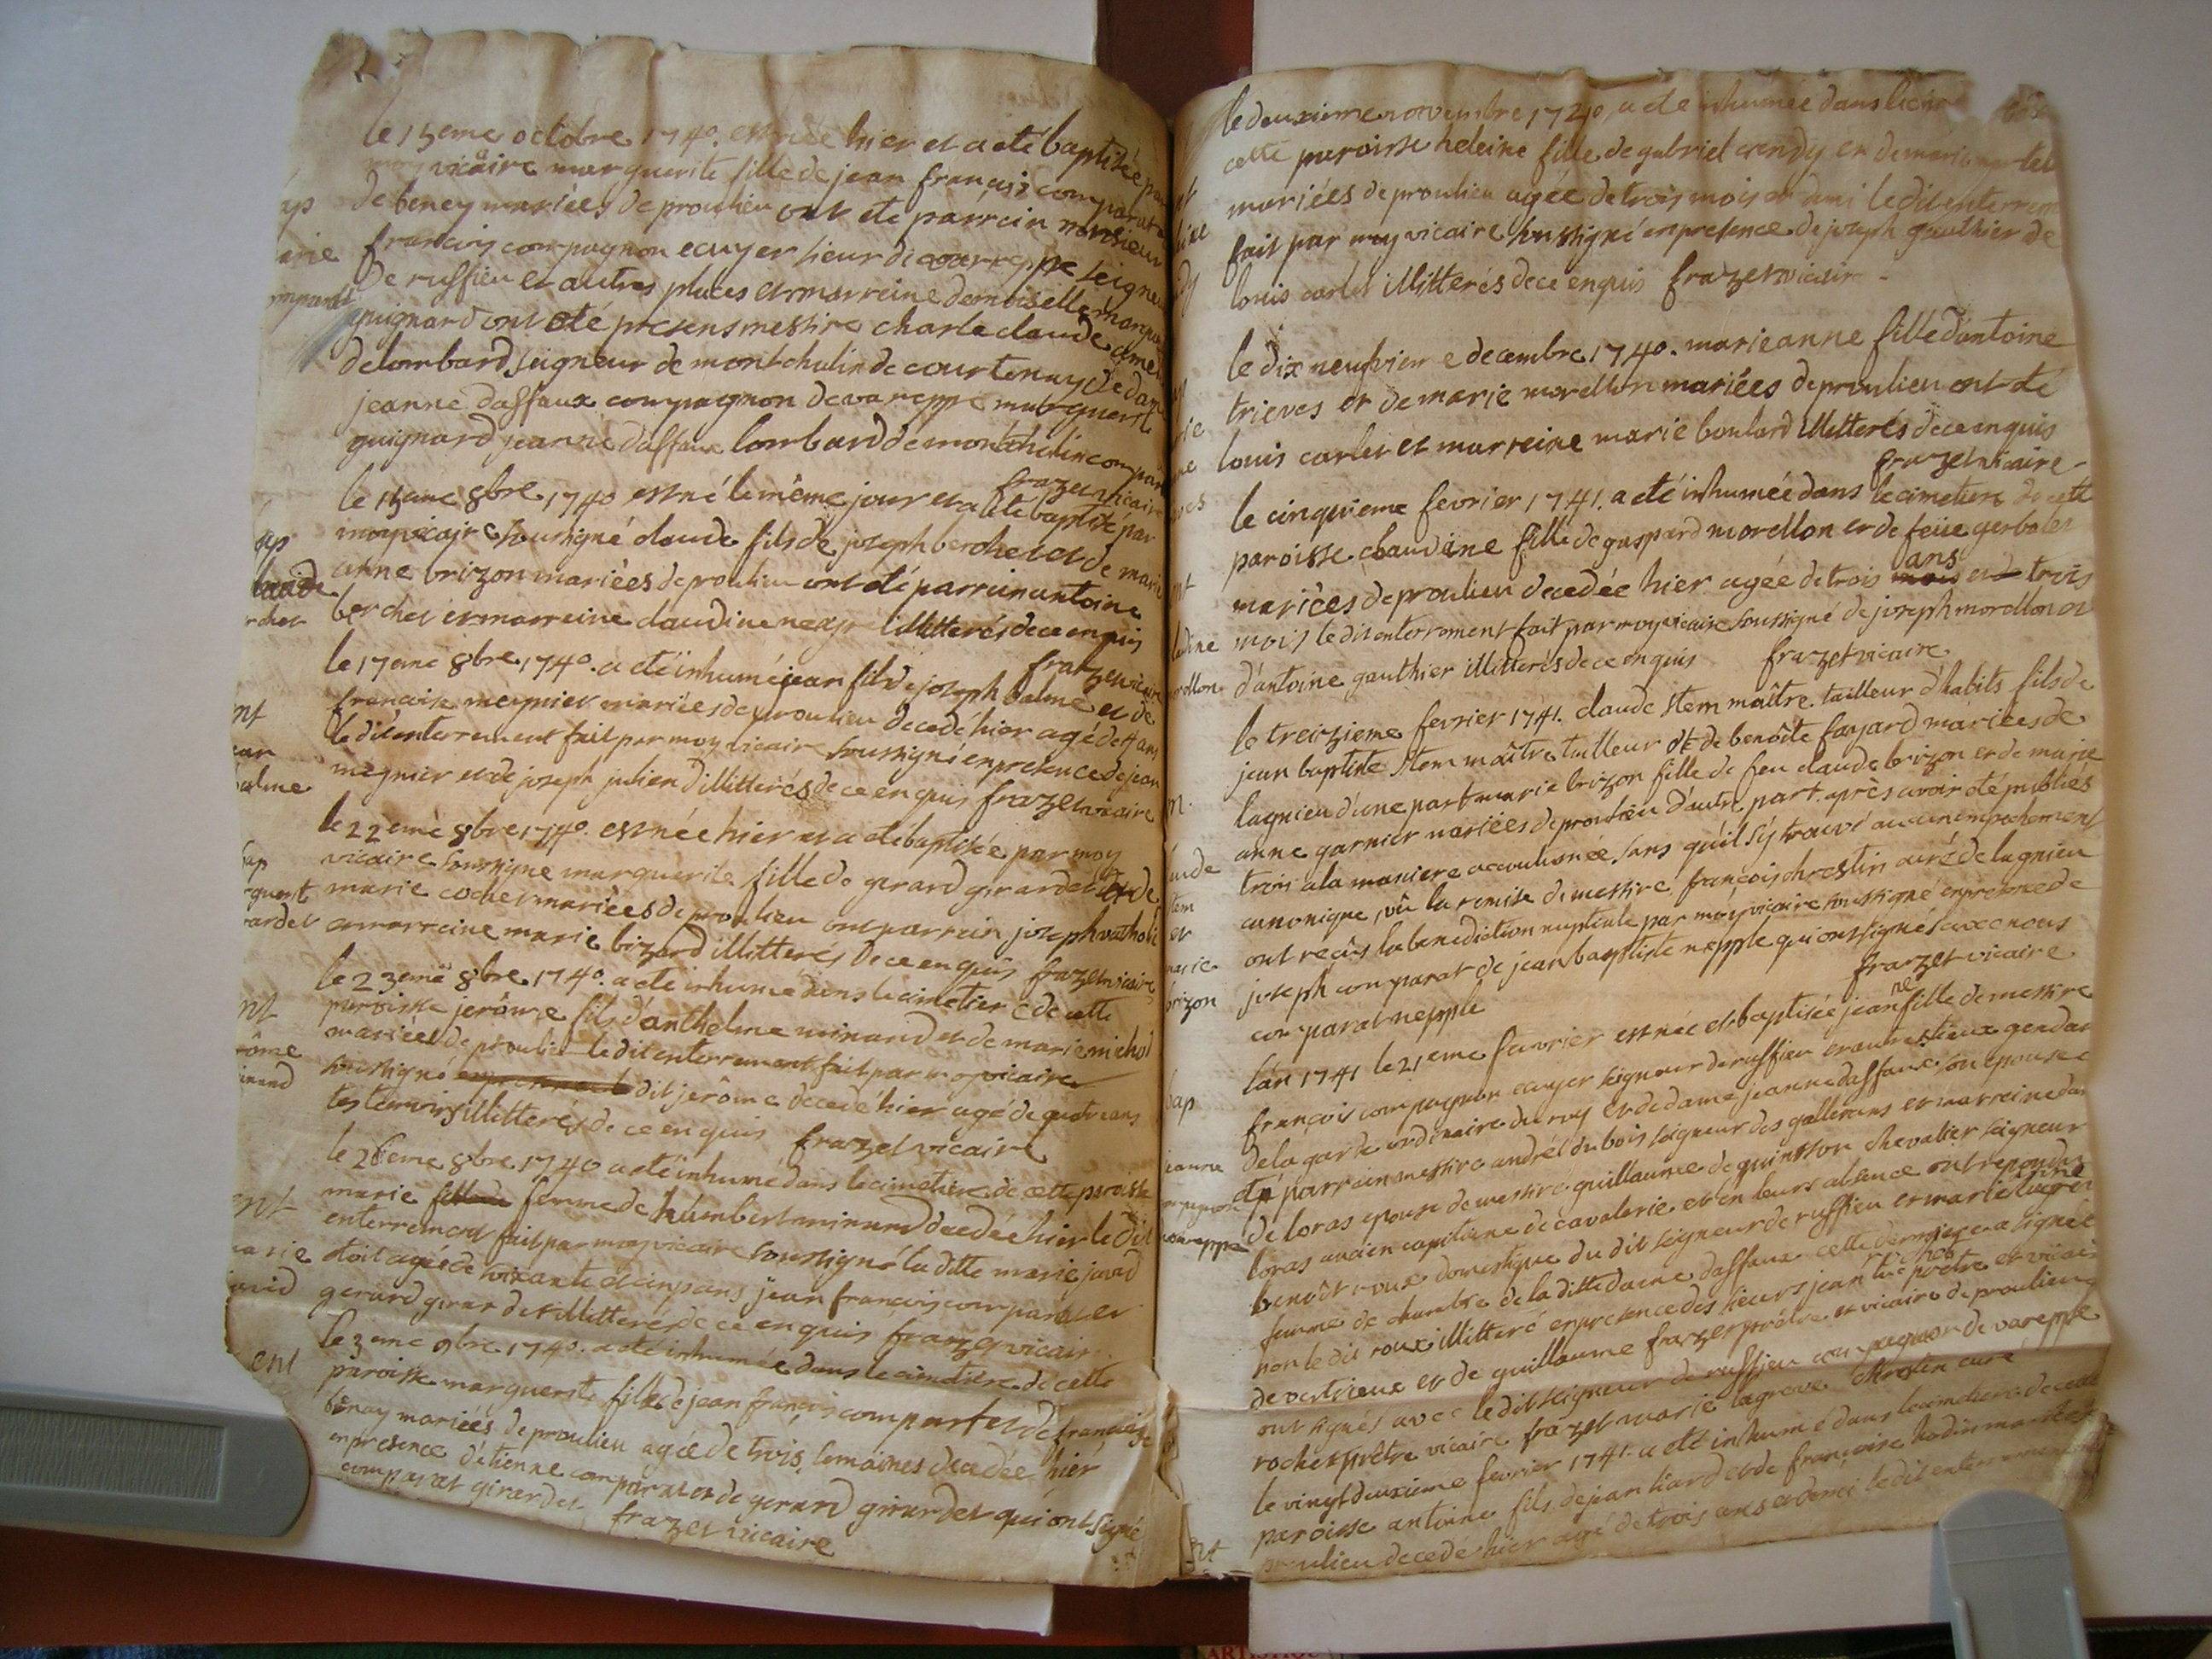 le 15eme octobre 1740. est née hier et a eté baptisée par
moy vicaire marguerite fille de jean françois comparat et
de beney mariées de proulieu ont eté parrein monsieur
francois compagnon ecuyer sieur de vareppe seigneur
De ruffieu et autres places et marreine demoiselle
guignard ont eté presens messire charle claude
delombard, seigneur de montchalin de courtenay de dame
jeanne daffaux compagnon de vareppe
guignard jeanne daffaux lombard de montchalin
frazet vicaire
le 15eme 8bre. 1740 est né le même jour et a eté baptisé par
moy vicaire soussigné claude fils de joseph berchet et de marie
anne brizon mariées de proulieu ont eté parrein antoine
berchet et marreine claudine illitterés de ce enquis
frazet vicaire
le 17eme 8bre. 1740. a eté inhumé jean fils de joseph balme et de
francoise meynier mariées de proulieu decedé hier agé de 4 ans
le dit enterrement fait par moy vicaire soussigné en presence de jean
megnier et de joseph julien d illitterés de ce enquis frazet vicaire
le 22eme 8bre 1740. est née hier et a eté baptisée par moy
vicaire soussigne marguerite fille de gerard girardet et de
marie cochet mariées de proulieu ont parrein joseph
et marreine marie bizard illitterés de ce enquis frazet vicaire
le 23eme 8bre. 1740. a eté inhumé dans le cimetiere de cette
paroisse jerôme fils d'anthelme minand et de marie michol
mariées de proulieu le dit enterrement fait par moy vicaire
soussigné dit jerôme decedé hier agé de quatre ans
les temoins illitterés de ce enquis frazet vicaire
le 26eme 8bre. 1740 a eté inhumé dans le cimetiere de cette paroisse
marie femme de humbert minand decedée hier le dit
enterrement fait par moy vicaire soussigné la ditte marie javid
etoit agée de soixante et cinq ans jean francois comparat et
gerard girardet illitterés de ce enquis frazet vicaire
le 3eme 9bre. 1740. a eté inhumée dans le cimetiere de cette
paroisse marguerite fille de jean francois comparat et de francoise
beney mariées de proulieu agée de trois semaines decedée hier
en presence d'etienne comparat et de gerard girardet qui ont signé
comparat girardet
frazet vicaire
le deuxieme novembre 1740, a eté inhumée dans le
cette paroisse heleine fille de gabriel cendy et de marie martel
mariées de proulieu agée de trois mois et demi le dit enterrem
fait par moy vicaire soussigné en presence de joseph gauthier de
louis carlet illitterés de ce enquis frazet vicaire
le dix neufvieme decembre. 1740. marieanne fille d'antoine
trieves et de marie morellon mariées de proulieu ont eté
louis carlet et marreine marie boulard illitterés de ce enquis
frazet vicaire
le cinquieme fevrier 1741. a eté inhumée dans le cimetiere de cette
paroisse claudine fille de gaspard morellon et de feüe gerbolet
ans
mariées de proulieu decedée hier agée de trois mois et de trois
mois le dit enterrement fait par moy vicaire soussigné de joseph morellon et
d'antoine gauthier illitterés de ce enquis frazet vicaire
le treizieme fevrier 1741. claude Stem maître tailleur d'habits fils de
jean baptiste Stem maître tailleur et de benoite fayard mariées de
lagnieu d'une part marie brizon fille de feu claude brizon et de marie
anne garnier mariées de proulieu d'autre part. après avoir eté publiés
trois a la maniere accoutumée sans qu'il s'y trouvé aucun empechement
canonique, vû la remise de messire françois chrestin curé de lagnieu
ont reçûs la benediction nuptiale par moy vicaire soussigné en presence de
joseph comparat de jean baptiste nepple qui ont signés avec nous
comparat nepple frazet vicaire
ne
l'an 1741 le 21eme fevrier est née et baptisée jean fille de messire
françois compagnon ecuyer seigneur de ruffieu et autres lieux gendar
dela garde ordinaire du roy et de dame jeanne daffaux son epouse a
eté parrein messire andré dubois seigneur des gallerans et marreine dame
de loras epouse de messire guillaume de quinsson chevalier seigneur
loras ancien capitaine de cavalerie et en leurs absence ont repondu
benoît roux domestique du dit seigneur de ruffieu et marie lagreve
femme de chambre de la ditte dame daffaux cette derniere a signée
non le dit roux illitteré en presence des sieurs jean rochet prêtre et vicaire
de vertrieux et de guillaume frazet prêtre et vicaire de proulieu
ont signés avec le dit seigneur de ruffieu compagnon de vareppe
rochet prêtre vicaire frazet marie lagreve chrestin curé
le vingt deuxieme fevrier 1741. a eté inhumé dans le cimetiere de cette
paroisse antoine fils de jean liard et de francoise hodin mariées de
proulieu decedé hier agé de trois ans et demi le dit enterrement